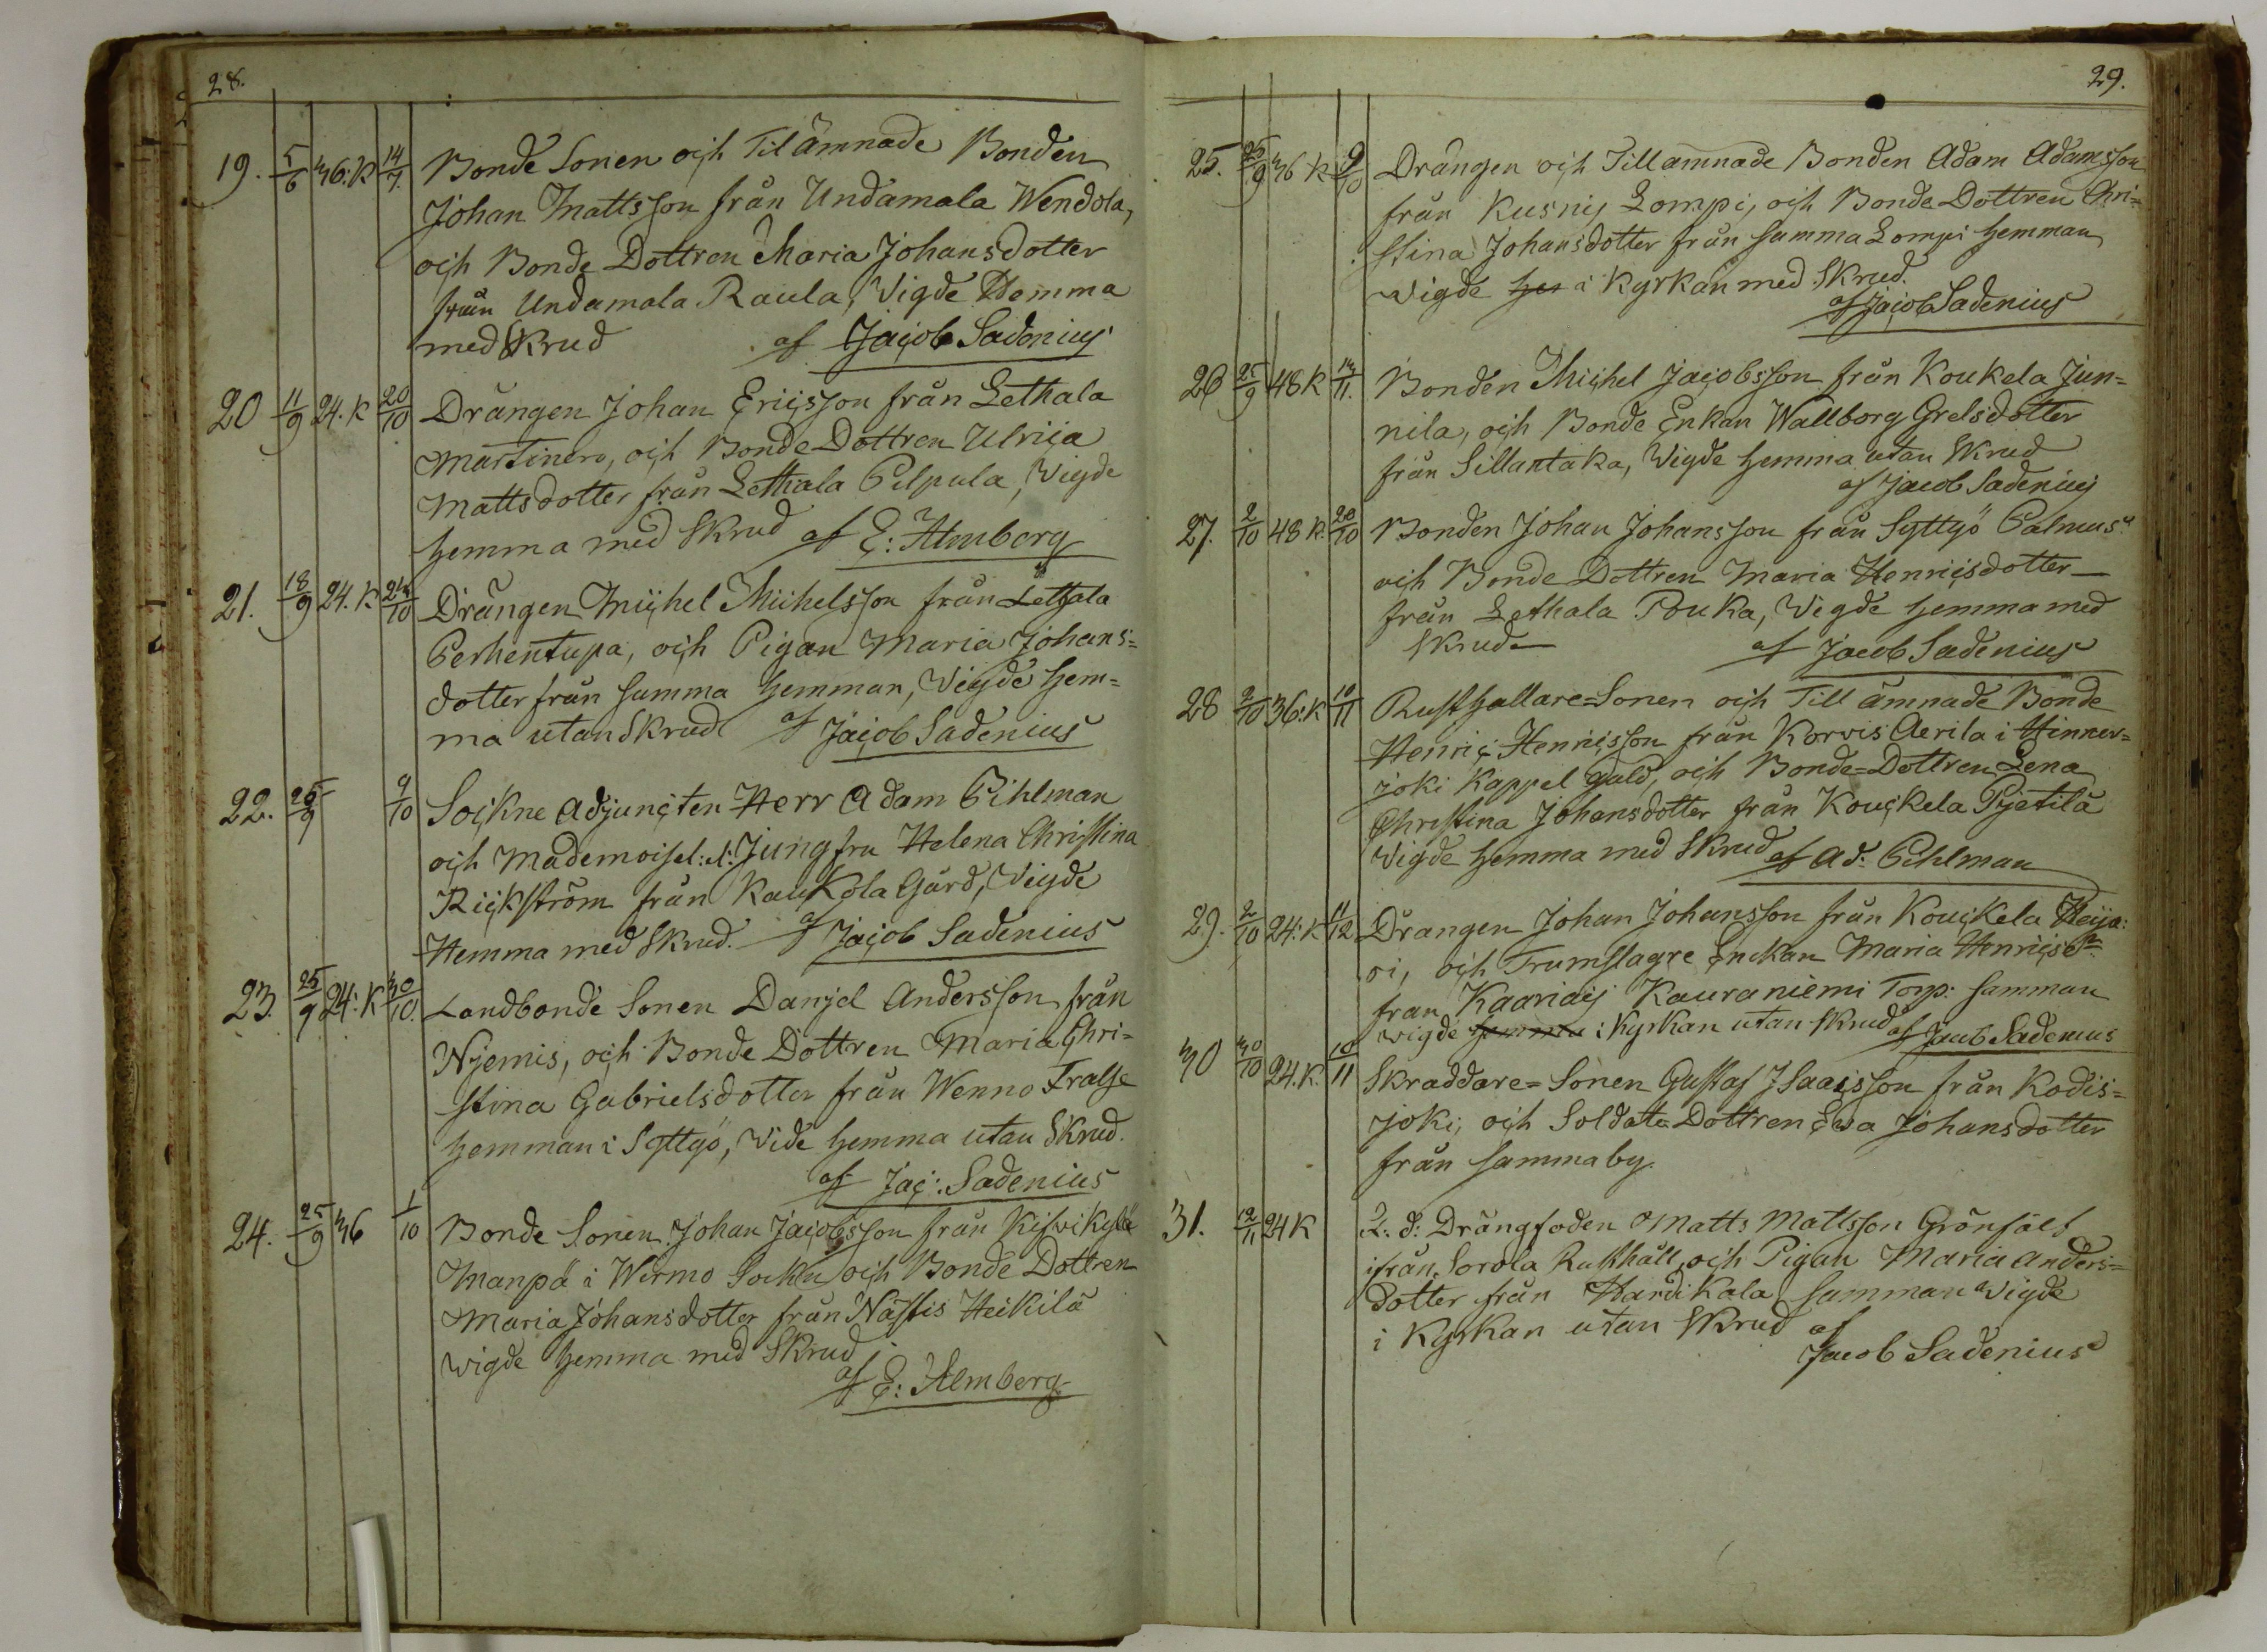 28.
19. 5/6 36: K 14/7. Bonde Sonen och Til ämnade Bonden
Johan Mattsson från Undamala Wendola,
och Bonde Dottren Maria Johansdotter
från Undamala Raula, Vigde Hemma
med Skrud af Jacob Sadenius
20 11/9 24. K 20/10 Drängen Johan Ericsson från Lethala
Martinero, och Bonde Dottren Ulrica
Mattsdotter från Lethala Pilpula, Vigde
hemma med Skrud af E: Almberg
21. 18/9 24. K 24/10 Drängen Michel Michelsson från Lethala
Perhentupa, och Pigan Maria Johans=
dotter från samma hemman, Vigde hem=
ma utan Skrud af Jacob Sadenius
22. 25/9 9/10 Sockne Adjuncten Herr Adam Pihlman
och Mademoisel: el: Jungfru Helena Christina
Rickström från Kaukola Gård, Vigde
Hemma med Skrud. af Jacob Sadenius
23. 25/9 24: K 30/10. Landbonde Sonen Danjel Andersson från
Njemis, och Bonde Dottren Maria Chri=
stina Gabrielsdotter från Wenno Fralse
hemman i Syttyö, Vide hemma utan Skrud.
af Jac: Sadenius
24. 25/9 36 1/10 Bonde Sonen Johan Jacobsson från
Manpä i Wirmo Sockn och Bonde Dottren
Maria Johansdotter från Nästis Heikilä
wigde hemma med Skrud
af E: Almberg
29.
25. 25/9 36 K 9/10 Drängen och Tillamnade Bonden Adam Adamsson
från Kusnij Lompi, och Bonde Dottren Chri=
stina Johansdotter från samma Lompi hemman
Wigde hes i Kyrkan med Skrud.
af Jacob Sadenius
26 25/9 48 K 13/11. Bonden Michel Jacobsson från Koukela Jun=
nila, och Bonde Enkan Wallborg Grelsdotter
från Sillantaka, Vigde hemma utan Skrud
af Jacob Sadenius
27. 2/10 48 K. 20/10 Bonden Johan Johansson från Syttyö Palmus
och Bonde Dottren Maria Henricsdotter
från Lethala Pouka, Vigde hemma med
Skrud af Jacob Sadenius
28 2/10 36: K 10/11 Rusthallare=Sonen och Till ämnade Bonde
Henric Henricsson från Korvis Aerila i Hinner=
joki Kappel gäld, och Bonde=Dottren Lena
Christina Johansdotter från Kouckela Pjetilä
Vigde hemma med Skrud af Ad: Pihlman
29. 2/10 24: K 11/12 Drangen Johan Johansson från Kouckela Heija:
oi, och Trumslagre Enckan Maria Henrics
fran Kaariaij Kauraniemi Torp: samman
wigde hemma i Kyrkan utan skrud af Jacob Sadenius
30 30/10 24. K. 10/11 Skraddare=Sonen Gustaf Isaacsson från Kodis=
joki, och Soldate Dottren Ewa Johansdotter
från samma by.
31. 12/11 24 K 2: d: Drängfoden Matts Mattsson Grönfält
ifrån Sorola Rusthåll, och Pigan Maria Anders=
dotter från Hardikala samman wigde
i Kyrkan utan Skrud af
Jacob Sadenius